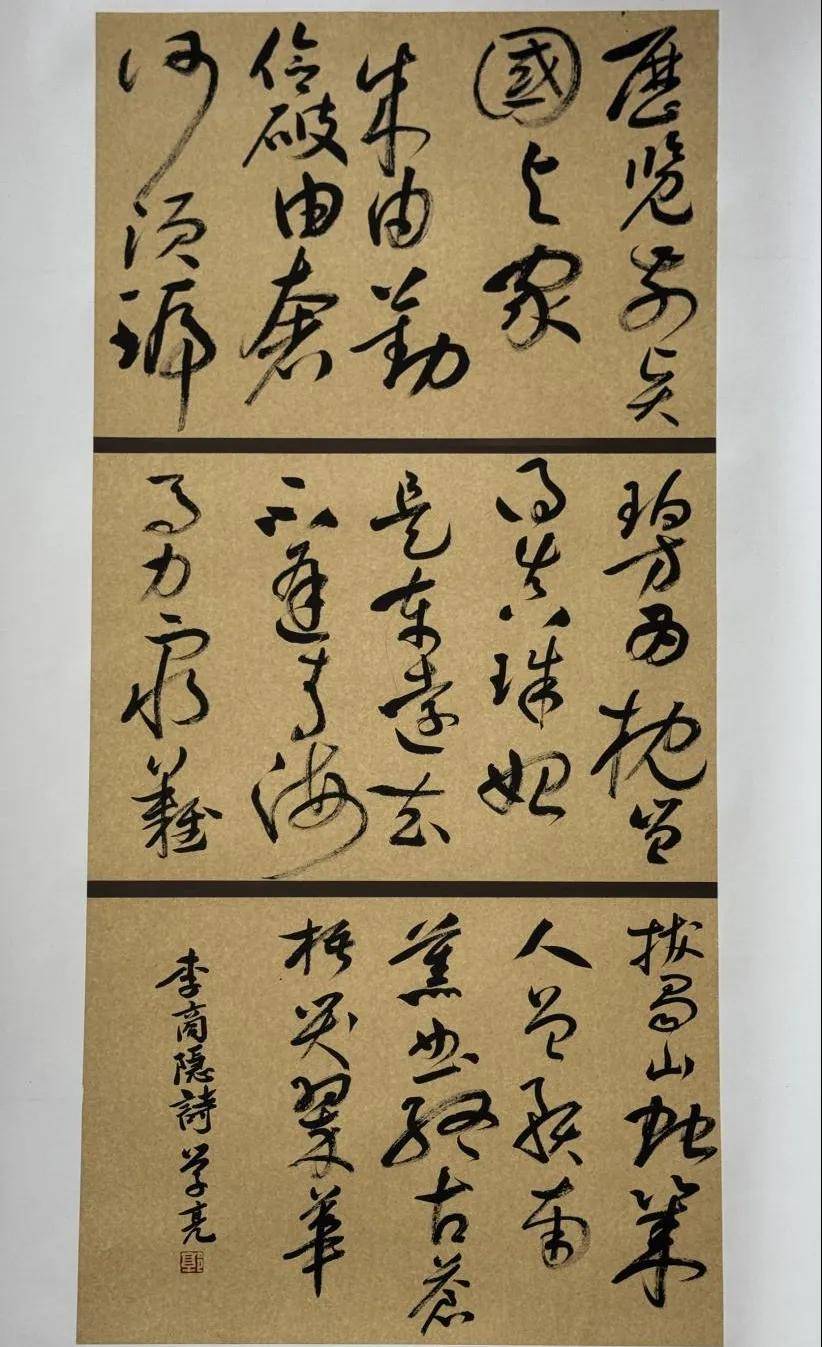 歷览前贤
國与家
成由勤
儉破由奢
何須琥
珀方为枕岂
得真珠始
是车運去
不逢青海
马力窮難
拔蜀山蛇幾
人曾預南
薰曲終古蒼
梧哭翠華
李商隱詩 学亮